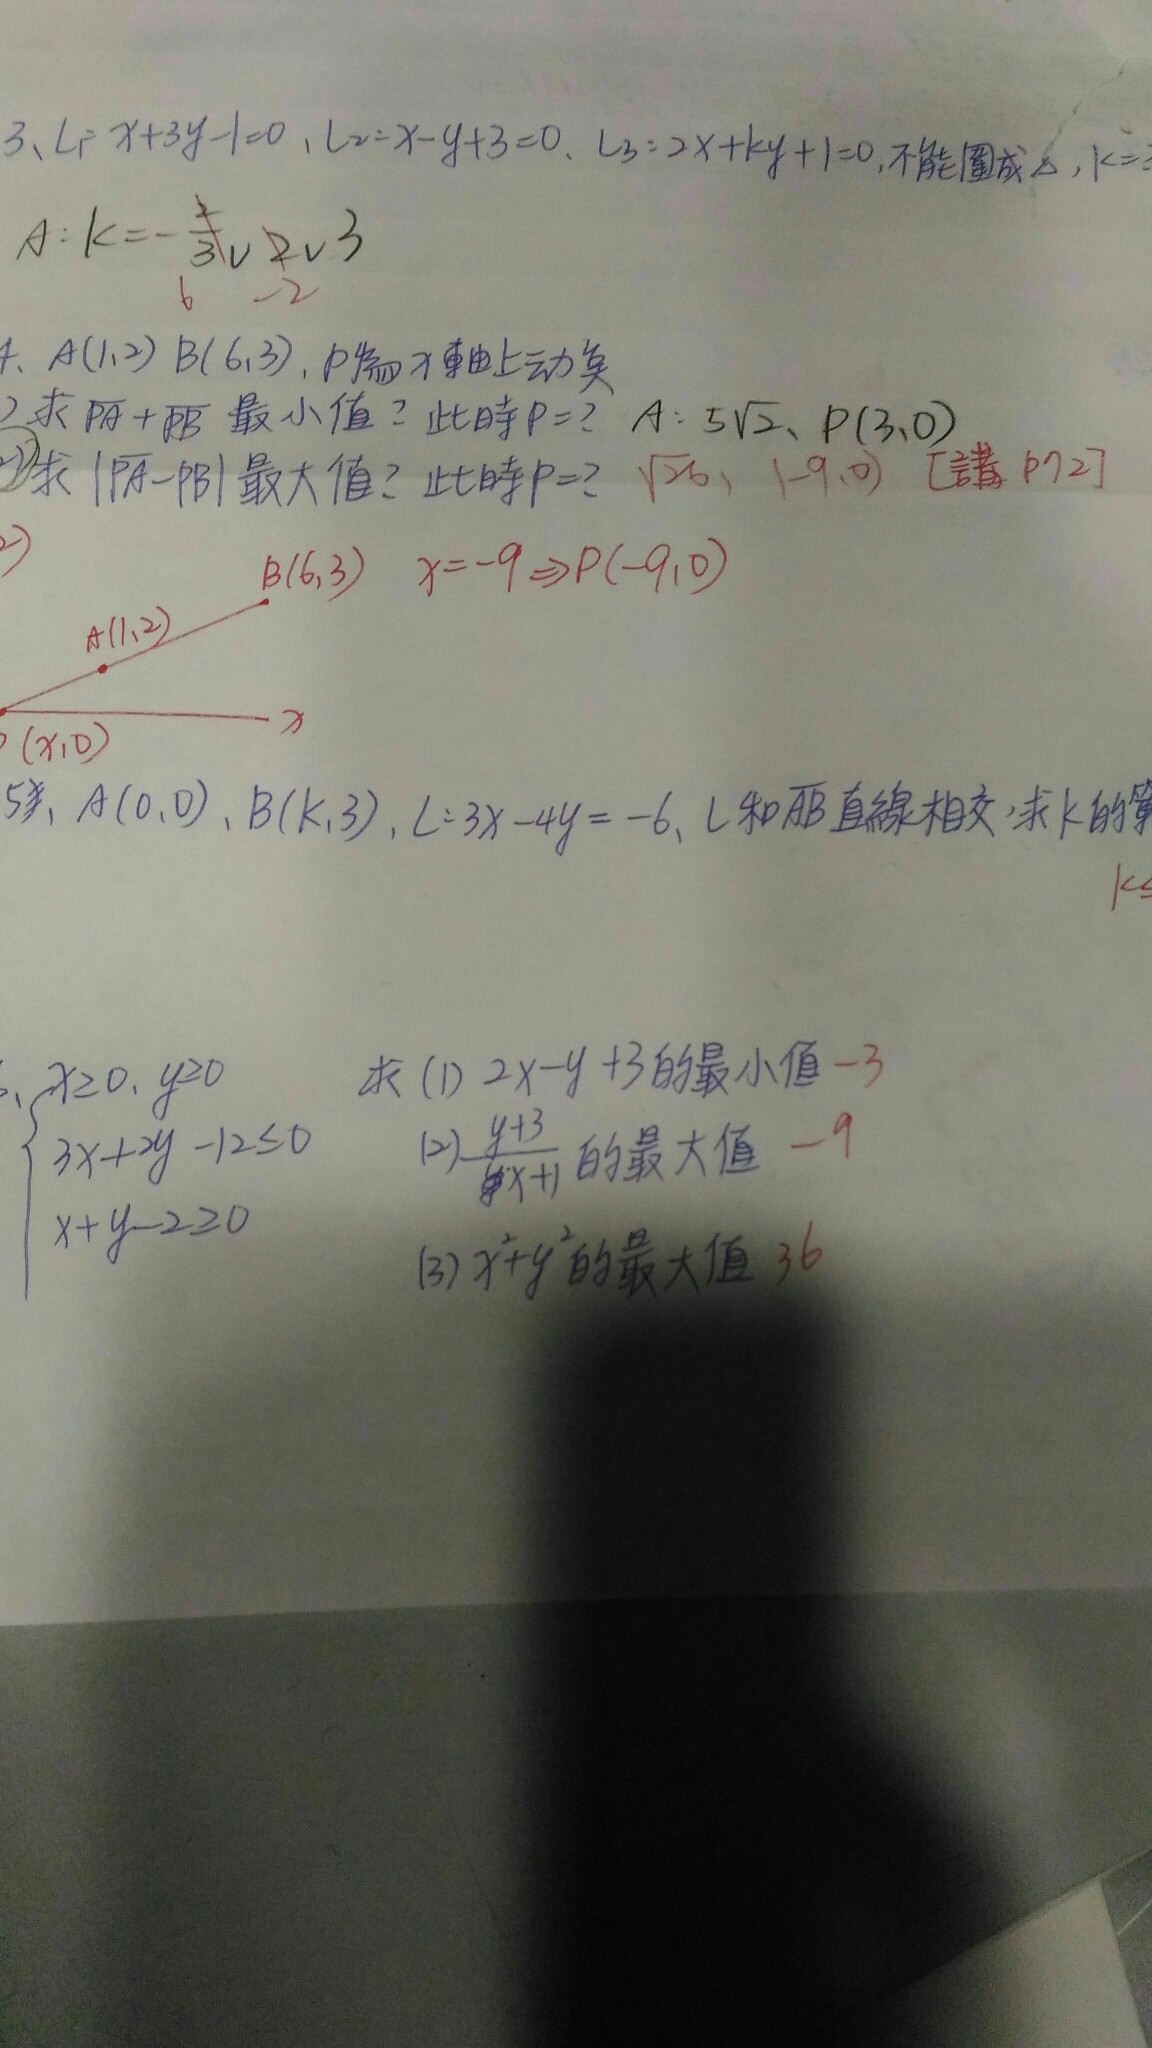 3、L₁: x+3y-1=0、L₂:x-y+3=0、L₃:2x+ky+1=0,不能圍成△,k=?
A:k=- 2/3 ∨ 2 ∨ 3
6 -2
4、A(1,2) B(6,3)、P為x軸上动奌
求 PA+PB 最小值? 此時P=? A:5√2、P(3,0)
求 |PA-PB| 最大值? 此時P=? √26、(-9,0) [講 P72]
2)
B(6,3) x=-9⇒P(-9,0)
A(1,2)
x
P (x,0)
5、A(0,0)、B(k,3)、L:3x-4y=-6、L和AB直線相交,求k的
k≤
x≥0、y≥0 求 (1) 2x-y+3的最小值 -3
3x+2y-12≤0 (2) y+3/x+1 的最大值 -9
x+y-2≥0
(3) x²+y²的最大值 36